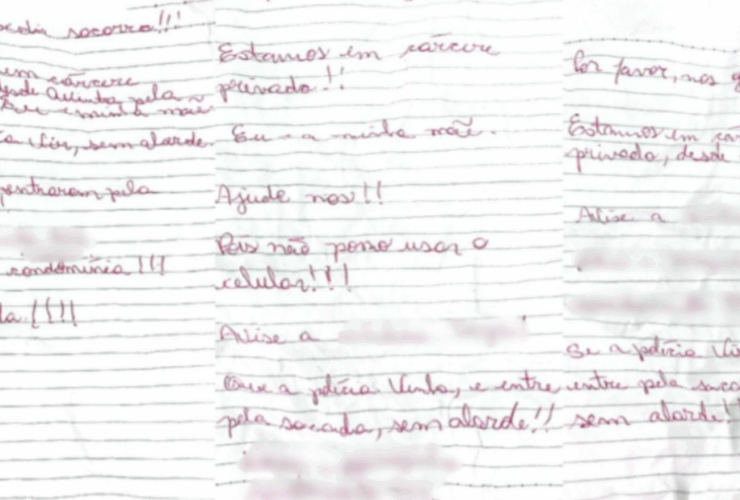 pedir socorro!!!
em cárcere
desde
pela
Eu e minha mãe
vir, sem alarde.
entraram pela
condomínio!!!
Estamos em cárcere
privado!!
Eu e a minha mãe.
Ajude nos!!
Pois não posso usar o
celular!!!
Avise a
Que a polícia Venha, e entre
pela sacada, sem alarde!!
Por favor, nos
Estamos em
privado, desde
Avise a
Se a polícia Vir
entre pela
sem alarde!